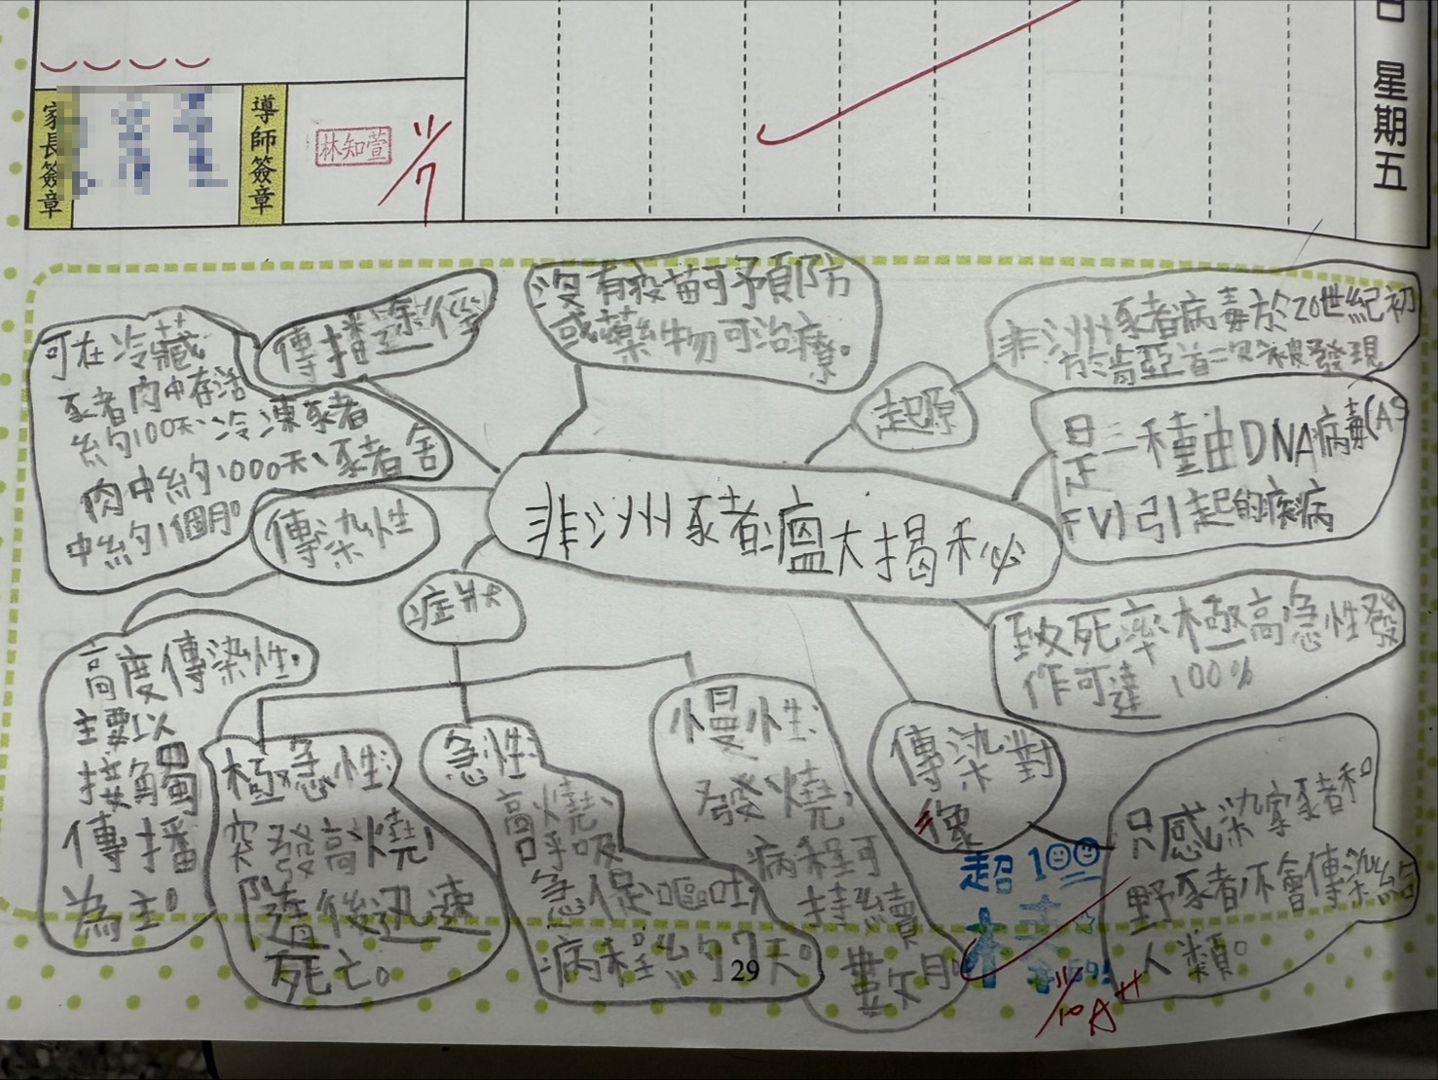 日 星期五
家長簽章
導師簽章
林知萱
11/7
非洲豬瘟大揭秘
傳播途徑
可在冷藏
豬肉中存活
約100天、冷凍豬
肉中約1000天、豬舍
中約1個月。
沒有疫苗可予預防
或藥物可治療。
起源
非洲豬病毒於20世紀初
於肯亞首次被發現
是一種由DNA病毒(AS
FV)引起的疾病
致死率極高急性發
作可達100%
傳染對
像
只感染家豬和
野豬不會傳染給
人類。
傳染性
高度傳染性。
主要以
接觸
傳播
為主。
症狀
極急性:
突發高燒,
隨後迅速
死亡。
急性:
高燒、
呼吸
急促、嘔吐,
病程約7天。
慢性:
發燒,
病程可
持續
數月。
超100
29
11/10 A++